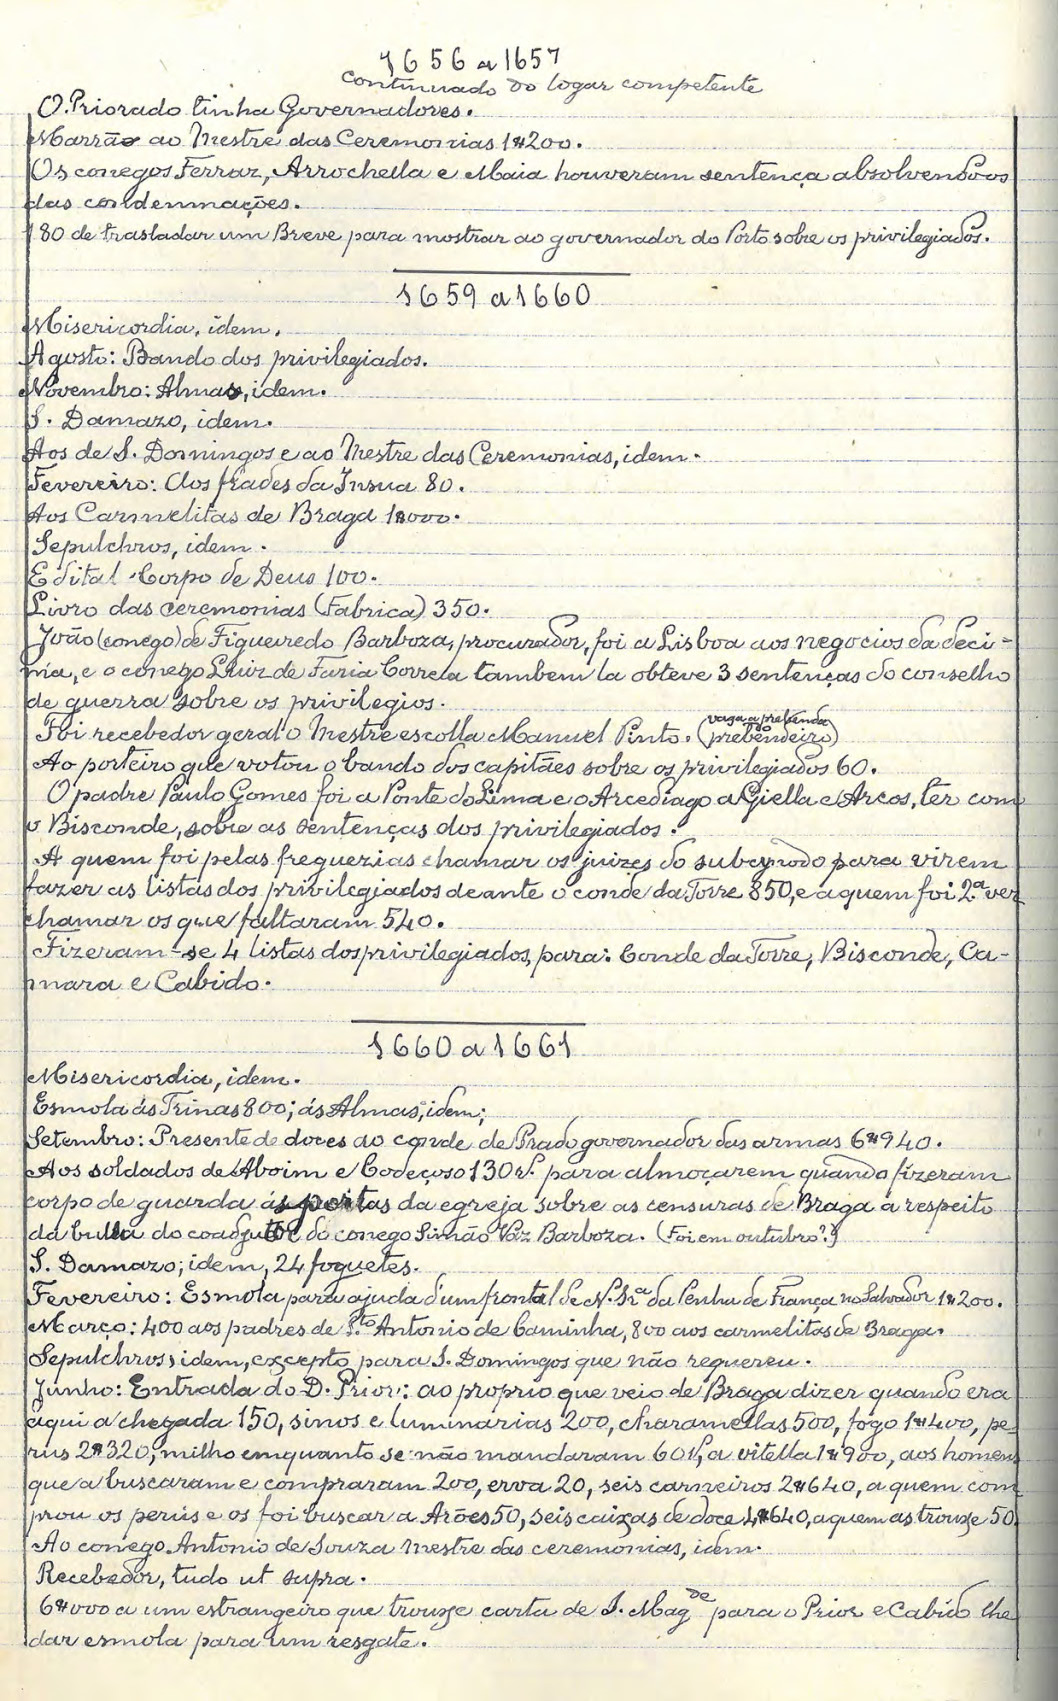 1656 a 1657
Continuado do logar competente
O Priorado tinha Governadores.
Marrão ao Mestre das Ceremonias 1$200.
Os conegos Ferraz, Arrochella e Maia houveram sentença absolvendo os
das condemnações.
180 de trasladar um Breve para mostrar ao governador do Porto sobre os privilegiados.
1659 a 1660
Misericordia, idem.
Agosto: Bando dos privilegiados.
Novembro: Almas, idem.
S. Damazo, idem.
Aos de S. Domingos e ao Mestre das Ceremonias, idem.
Fevereiro: Aos frades da Insua 80.
Aos Carmelitas de Braga 1$000.
Sepulchros, idem.
Edital Corpo de Deus 100.
Livro das ceremonias (Fabrica) 350.
João (conego) de Figueiredo Barboza, procurador, foi a Lisboa aos negocios da deci-
ma, e o conego Luiz de Faria Correa tambem la obteve 3 sentenças do conselho
de guerra sobre os privilegios.
Foi recebedor geral o Mestre escolla Manuel Pinto. (vaga a prebenda do prebendeiro)
Ao porteiro que votou o bando dos capitães sobre os privilegiados 60.
O padre Paulo Gomes foi a Ponte do Lima e o Arcediago a Giella e Arcos, ter com
o Bisconde, sobre as sentenças dos privilegiados.
A quem foi pelas freguezias chamar os juizes do subsynodo para virem
fazer as listas dos privilegiados deante o conde da Torre 850, e a quem foi 2.ª vez
chamar os que faltaram 540.
Fizeram-se 4 listas dos privilegiados, para: Conde da Torre, Bisconde, Ca-
mara e Cabido.
1660 a 1661
Misericordia, idem.
Esmola ás Trinas 800; ás Almas, idem;
Setembro: Presente de doces ao conde de Prado governador das armas 6$940.
Aos soldados de Aboim e Codeçoso 130 rs. para almoçarem quando fizeram
corpo de guarda ás portas da egreja sobre as censuras de Braga a respeito
da bulla do coadjutor do conego Simão Vaz Barboza. (Foi em outubro?)
S. Damazo; idem, 24 foguetes.
Fevereiro: Esmola para ajuda d'um frontal de N. Sr.ª da Penha de França no Salvador 1$200.
Março: 400 aos padres de S.to Antonio de Caminha, 800 aos carmelitas de Braga.
Sepulchros, idem, excepto para S. Domingos que não requereu.
Junho: Entrada do D. Prior: ao proprio que veio de Braga dizer quando era
aqui a chegada 150, sinos e luminarias 200, charamellas 500, fogo 1$400, pe-
rus 2$320, milho emquanto se não mandaram 60 rs, a vitella 1$900, aos homens
que a buscaram e compraram 200, erva 20, seis carneiros 2$640, a quem com
prou os perús e os foi buscar a Arões 50, seis caixas de doce 4$640, a quem as trouxe 50.
Ao conego Antonio de Souza mestre das ceremonias, idem.
Recebedor, tudo ut supra.
6$000 a um estrangeiro que trouxe carta de S. Mag.de para o Prior e Cabido lhe
dar esmola para um resgate.